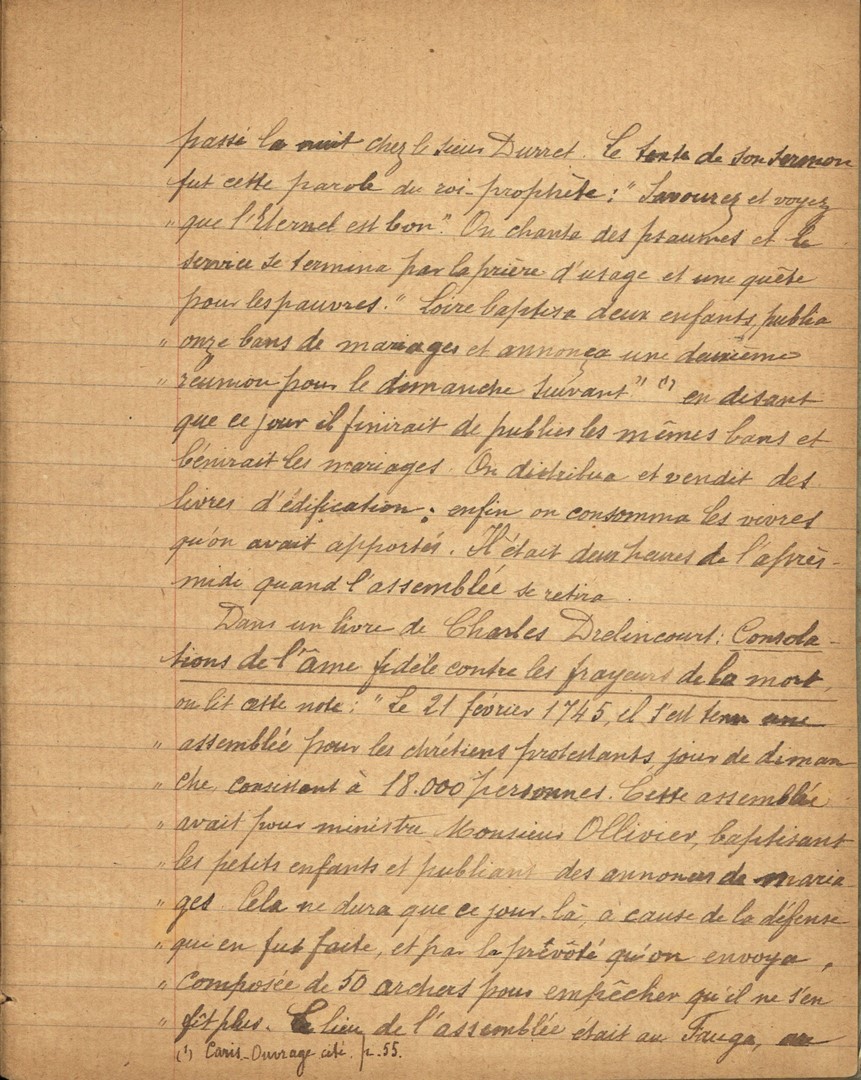 passé la nuit chez le sieur Durret. Le texte de son sermon
fut cette parole du roi-prophète : " Savourez et voyez
" que l'Eternel est bon". On chanta des psaumes et le
service se termina par la prière d'usage et une quête
pour les pauvres. " Loire baptisa deux enfants, publia
" onze bans de mariages et annonça une deuxième
" réunion pour le dimanche suivant" (1) en disant
que ce jour il finirait de publier les mêmes bans et
bénirait les mariages. On distribua et vendit des
livres d'édification ; enfin on consomma les vivres
qu'on avait apportés. Il était deux heures de l'après-
midi quand l'assemblée se retira.
Dans un livre de Charles Drelincourt : Consola-
tions de l'âme fidèle contre les frayeurs de la mort,
on lit cette note : " Le 21 février 1745, il s'est tenu une
" assemblée pour les chrétiens protestants, jour de diman
" che, consistant à 18.000 personnes. Cette assemblée
" avait pour ministre Monsieur Ollivier, baptisant
" les petits enfants et publiant des annonces de maria
" ges. Cela ne dura que ce jour-là, à cause de la défense
" qui en fut faite, et par la prévôté qu'on envoya,
" composée de 50 archers pour empêcher qu'il ne s'en
" fît plus. Le lieu de l'assemblée était au Fauga, au
(1) Caris-Ouvrage cité. p. 55.